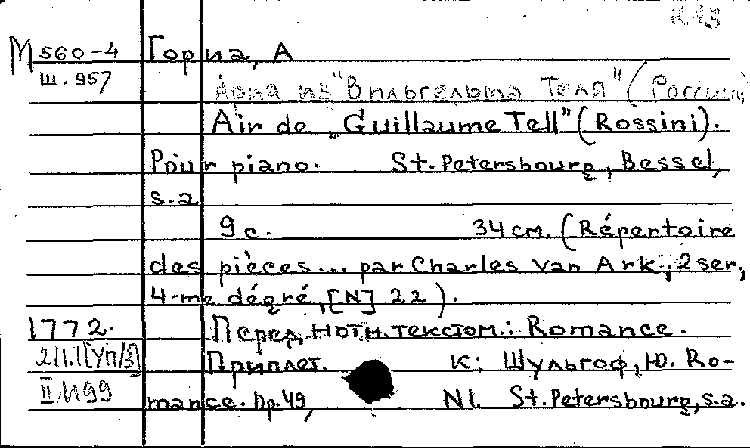 М 560-4 Гориа, А
Ш. 957
Ария из "Вильгельма Телля" (Россини)
Air de „Guillaume Tell" (Rossini).
Pour piano. St. Petersbourg, Bessel,
s.a
9 с. 34 см. (Répertoire
des pièces... par Charles Van Ark., 2 ser,
4-me dégré, [N] 22).
1772. Перед нотн. текстом: Romance.
Приплет. к: Шульгоф, Ю. Ro-
mance. Op. 49, N1. St. Petersbourg, s.a.